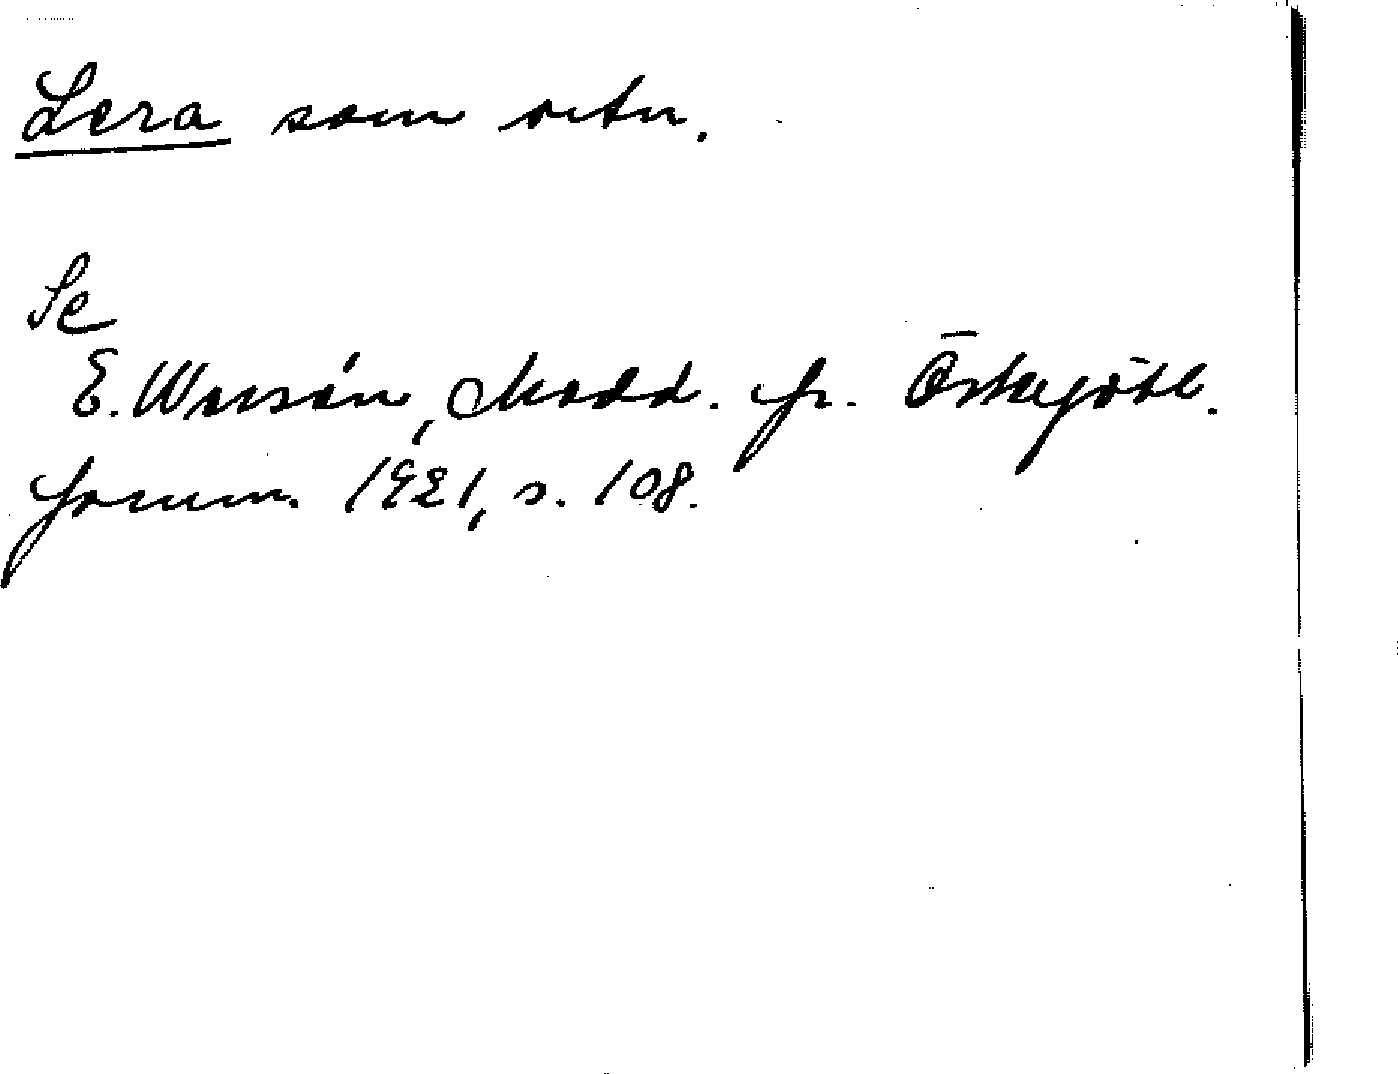 Lera som ortn.
Se
E. Wessén, Medd. fr. Östergötl.
fornm. 1921, s. 108.